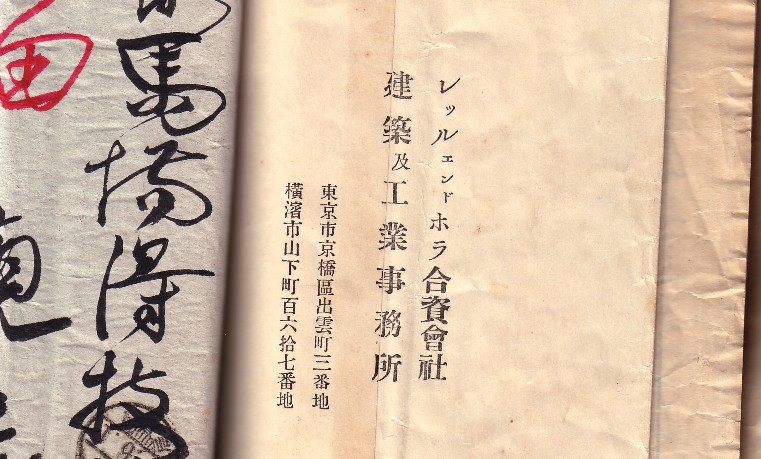 レッルエンドホラ合資會社
建築及工業事務所
東京市京橋區出雲町三番地
橫濱市山下町百六拾七番地
馬場得技